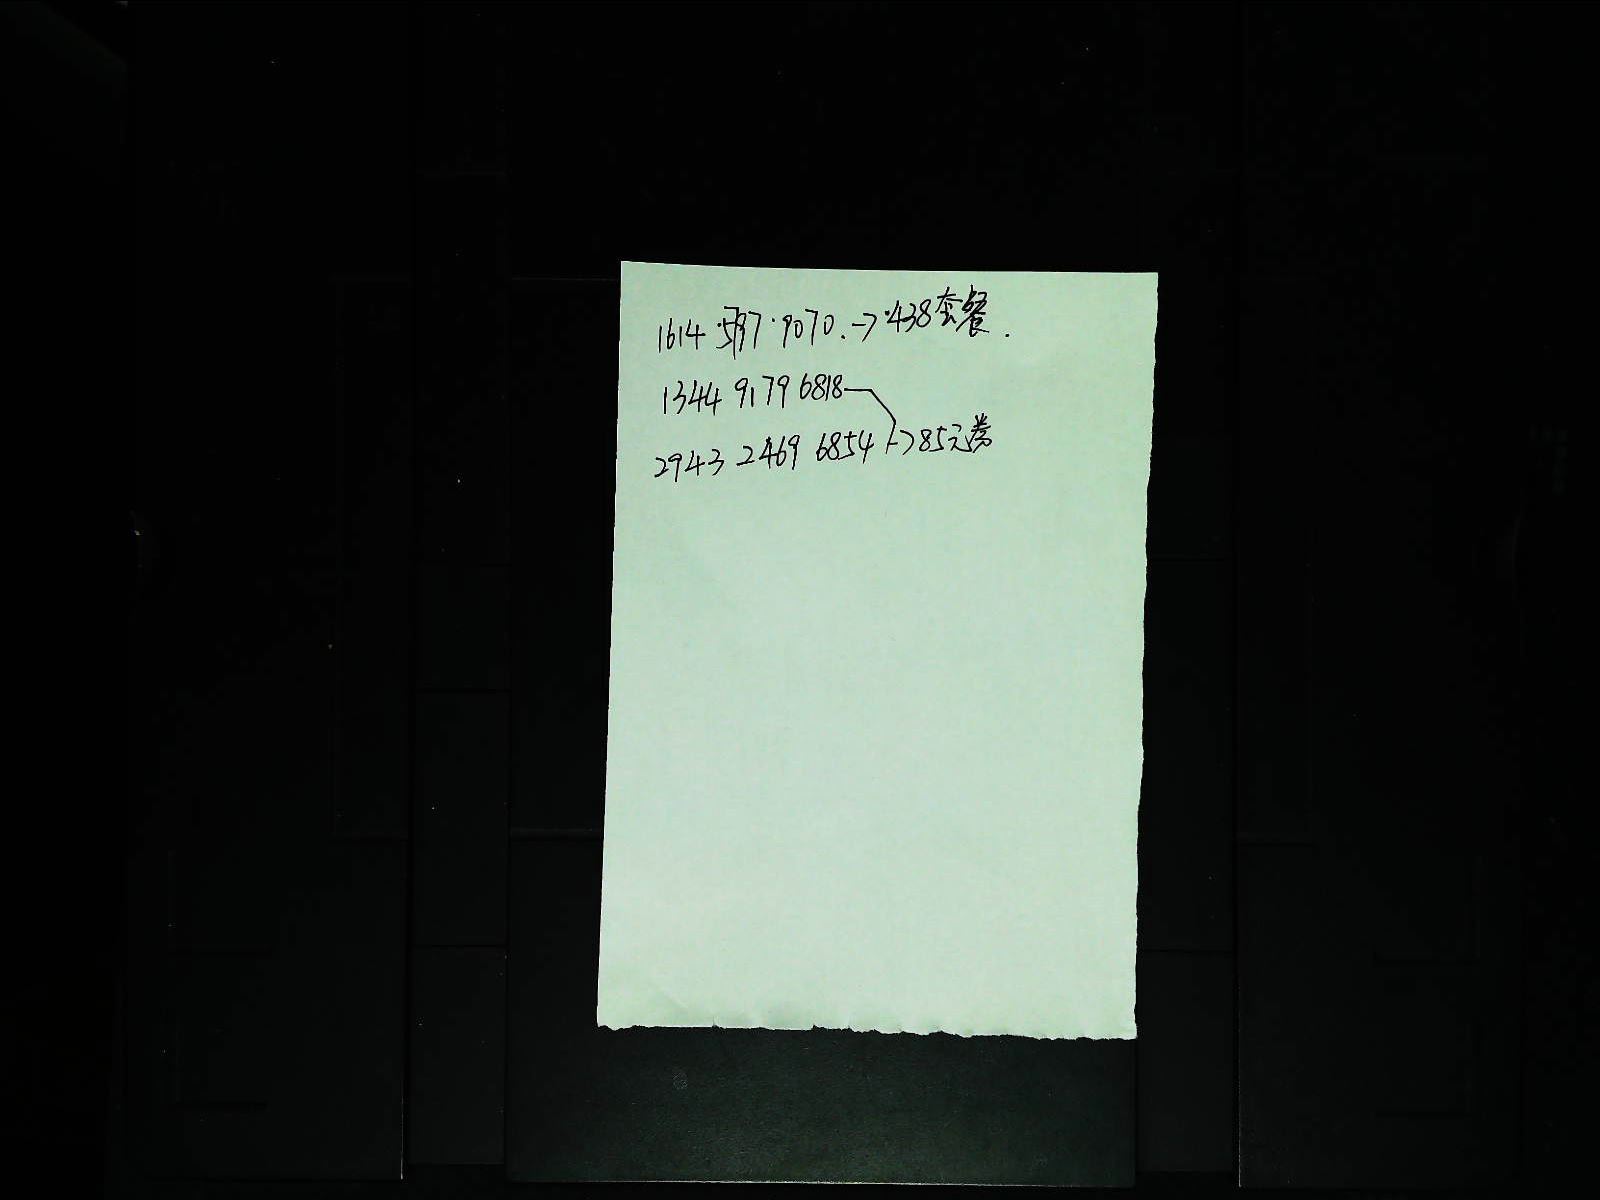 1614 · 5797 · 9070. -> · 438套餐.
1344 9179 6818
2943 2469 6854 -> 85元券